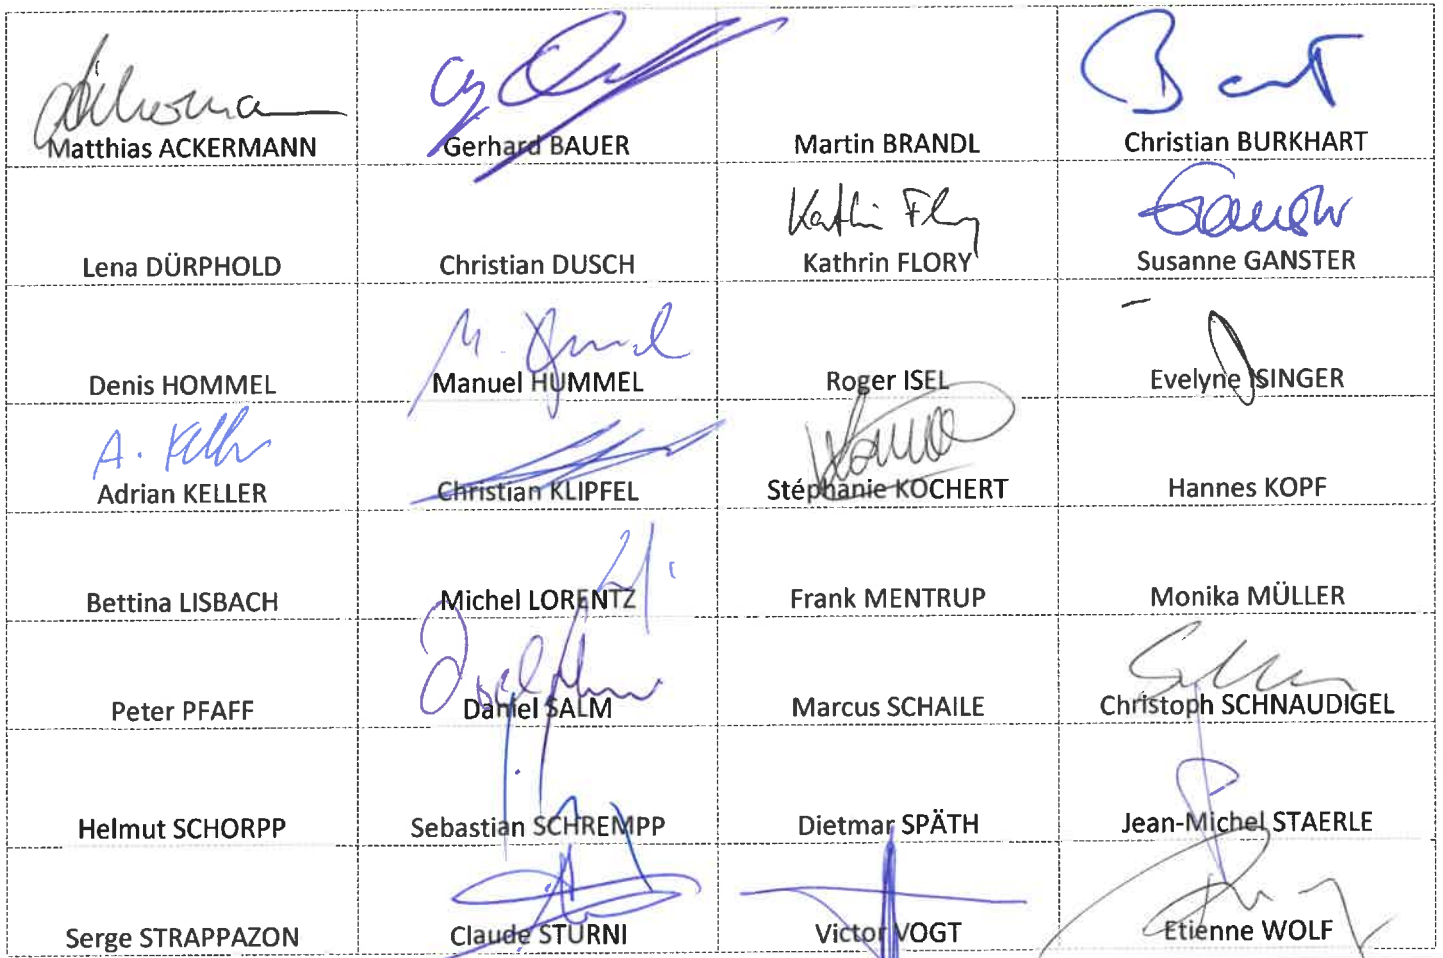 Matthias ACKERMANN Gerhard BAUER Martin BRANDL Christian BURKHART
Kathrin Flory
Lena DÜRPHOLD Christian DUSCH Kathrin FLORY Susanne GANSTER
Denis HOMMEL Manuel HUMMEL Roger ISEL Evelyne ISINGER
A. Keller
Adrian KELLER Christian KLIPFEL Stéphanie KOCHERT Hannes KOPF
Bettina LISBACH Michel LORENTZ Frank MENTRUP Monika MÜLLER
Peter PFAFF Daniel SALM Marcus SCHAILE Christoph SCHNAUDIGEL
Helmut SCHORPP Sebastian SCHREMPP Dietmar SPÄTH Jean-Michel STAERLE
Serge STRAPPAZON Claude STURNI Victor VOGT Etienne WOLF